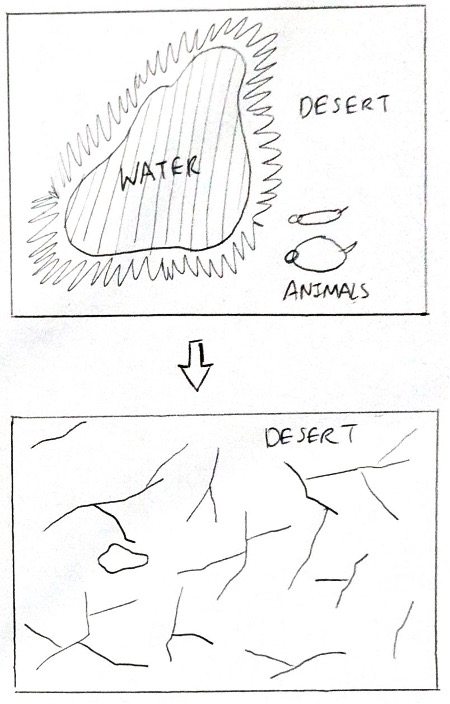 DESERT
WATER
ANIMALS
DESERT